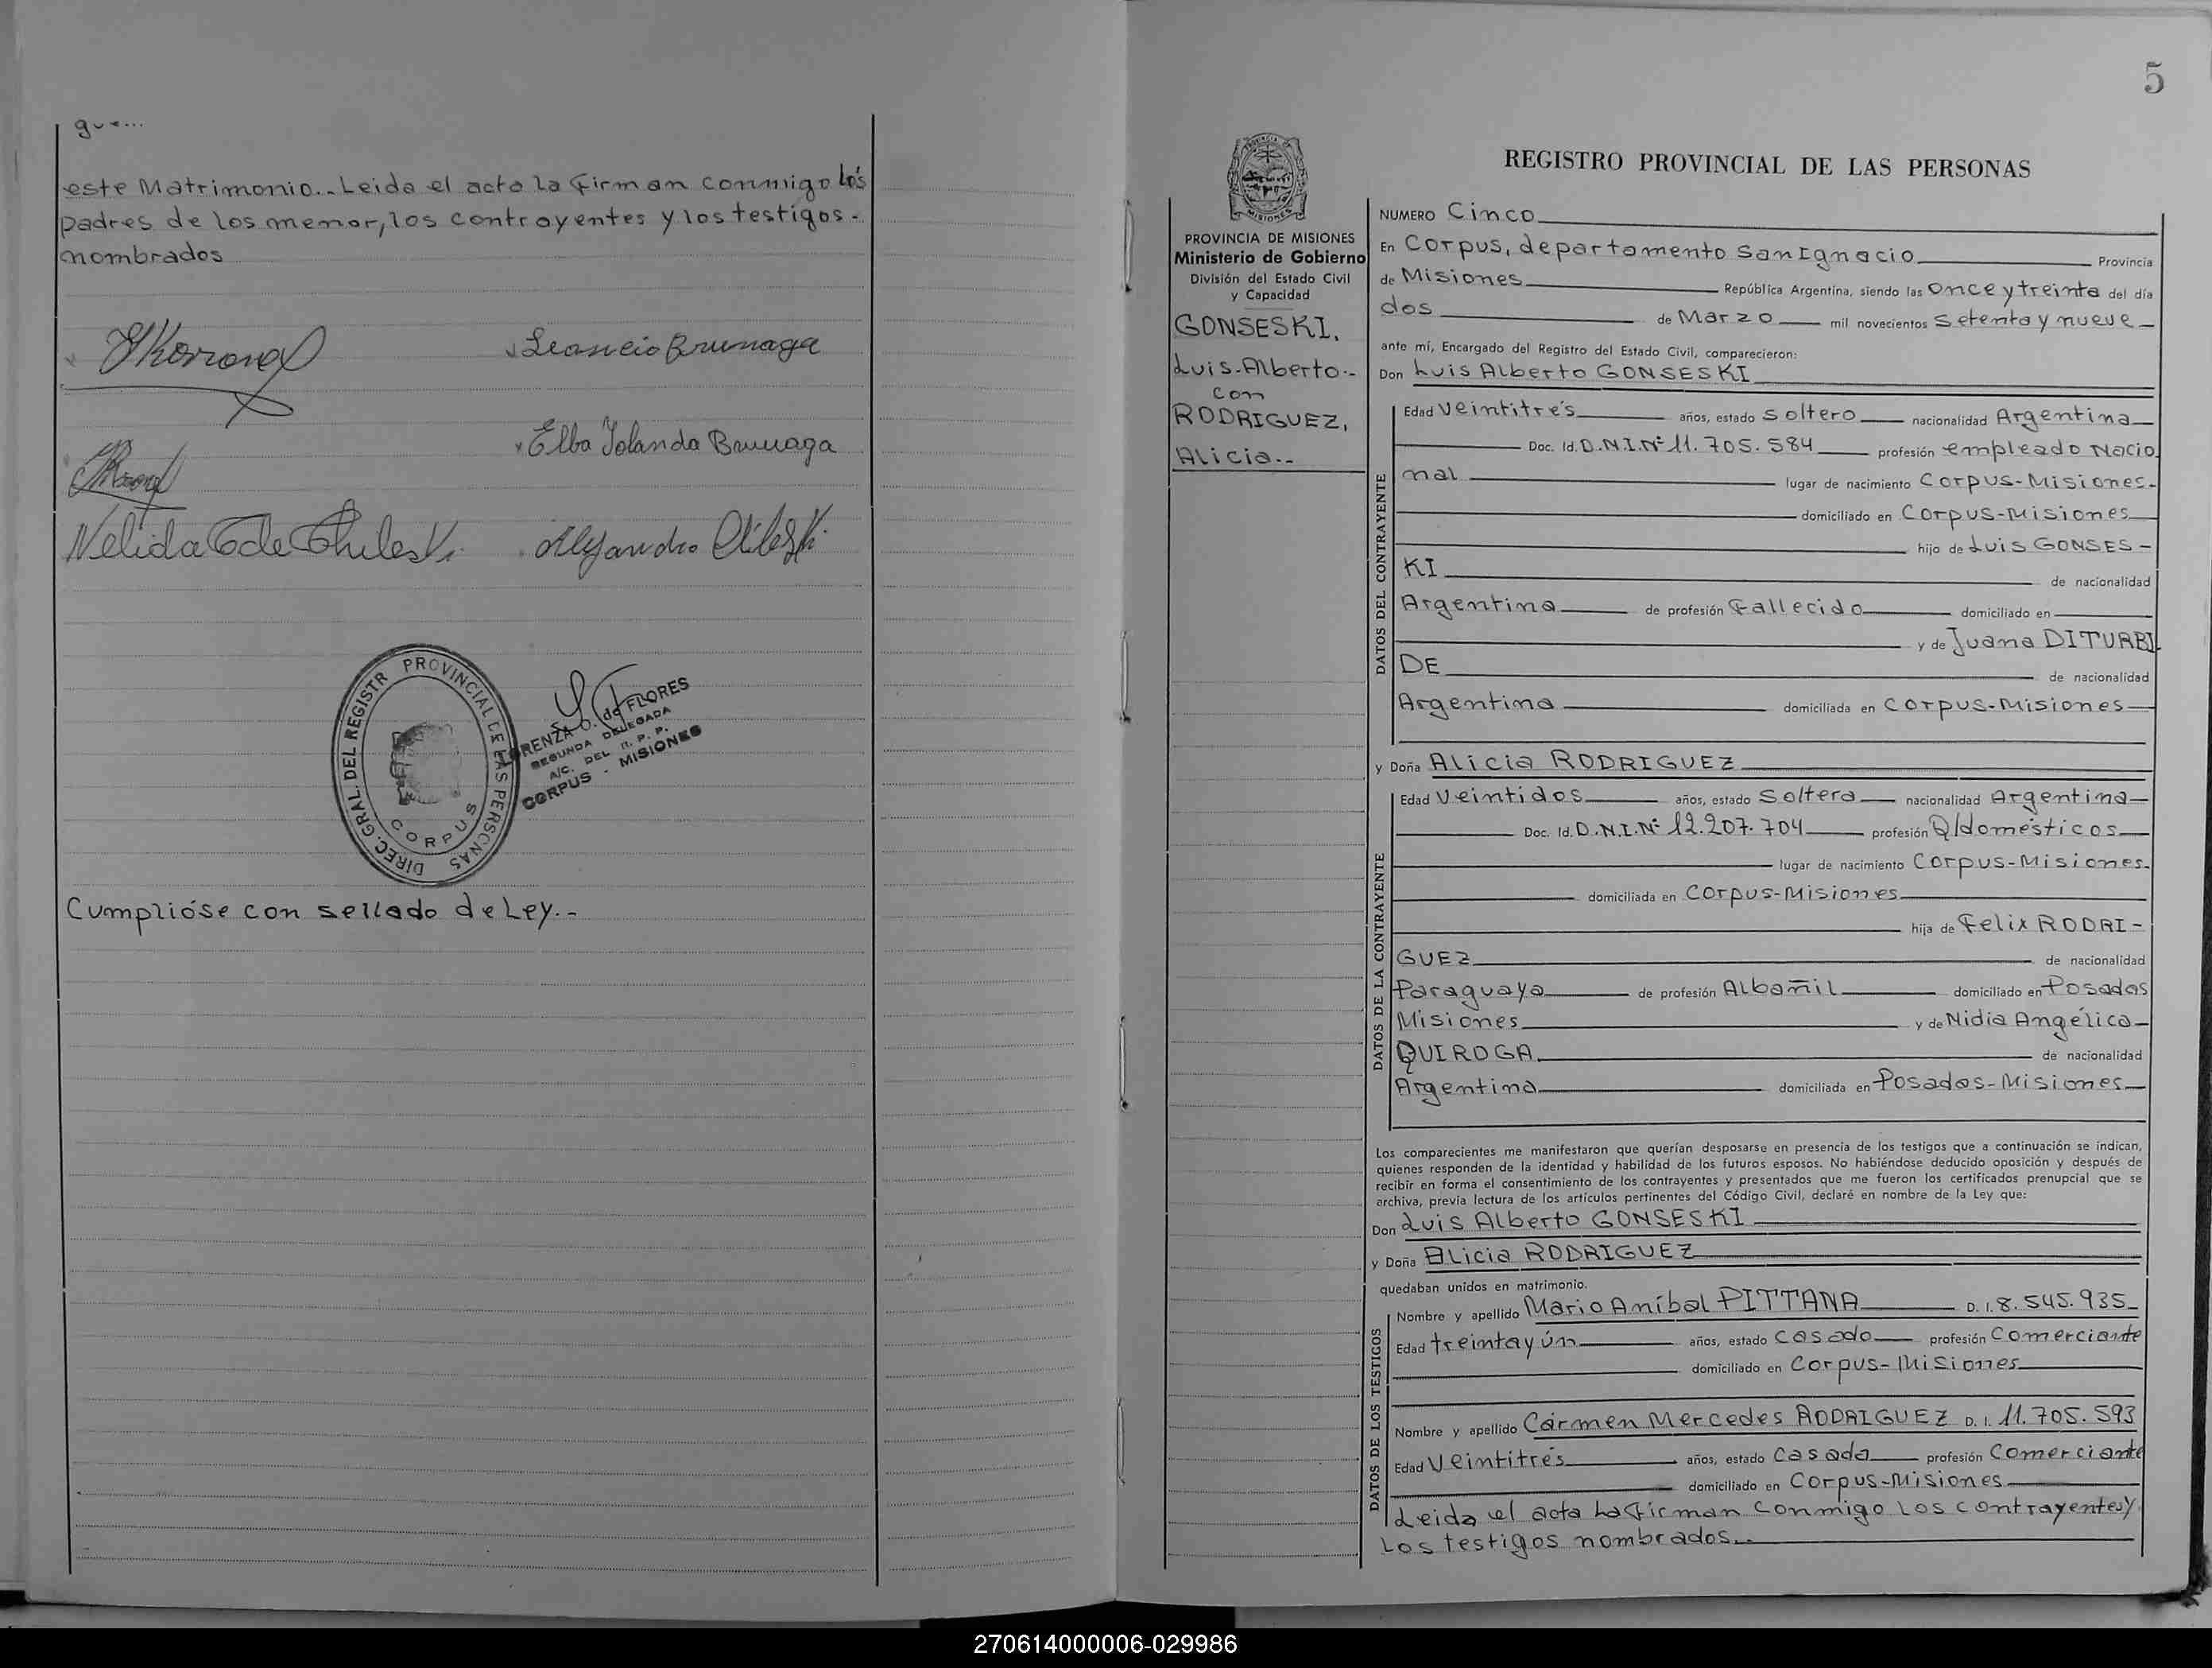 que...
este Matrimonio.. Leida el acta la firman conmigo los
padres de los menor, los contrayentes y los testigos.-
nombrados
Leoncio Brunaga
Elba Iolanda Brunaga
Nelida C de Chileski.
Alejandro Chileski.
DIREC. GRAL. DEL REGISTR PROVINCIAL DE LAS PERSONAS
CORPUS
LORENZA O. de FLORES
SEGUNDA DELEGADA
A/C. DEL R. P. P.
CORPUS - MISIONES
Cumplióse con sellado de Ley.-
5
PROVINCIA DE MISIONES
Ministerio de Gobierno
División del Estado Civil
y Capacidad
GONSESKI,
Luis Alberto.-
con
RODRIGUEZ,
Alicia.-
REGISTRO PROVINCIAL DE LAS PERSONAS
NUMERO Cinco
En Corpus, departamento San Ignacio Provincia
de Misiones República Argentina, siendo las Once y treinta del día
dos de Marzo mil novecientos setenta y nueve
ante mí, Encargado del Registro del Estado Civil, comparecieron:
Don Luis Alberto GONSESKI
DATOS DEL CONTRAYENTE
Edad veintitrés años, estado soltero nacionalidad Argentina
Doc. Id. D.N.I.Nº 11.705.584 profesión empleado Nacio
nal lugar de nacimiento Corpus-Misiones.
domiciliado en Corpus-Misiones
hijo de Luis GONSES-
KI de nacionalidad
Argentina de profesión Fallecido domiciliado en
y de Juana DITURBI
DE de nacionalidad
Argentina domiciliada en Corpus-Misiones
y Doña Alicia RODRIGUEZ
DATOS DE LA CONTRAYENTE
Edad Veintidos años, estado soltera nacionalidad Argentina
Doc. Id. D.N.I.Nº 12.207.704 profesión Q/domésticos
lugar de nacimiento Corpus-Misiones.
domiciliada en Corpus-Misiones
hija de Felix RODRI-
GUEZ de nacionalidad
Paraguaya de profesión Albañil domiciliado en Posadas
Misiones y de Nidia Angélica
QUIROGA de nacionalidad
Argentina domiciliada en Posadas-Misiones
Los comparecientes me manifestaron que querían desposarse en presencia de los testigos que a continuación se indican,
quienes responden de la identidad y habilidad de los futuros esposos. No habiéndose deducido oposición y después de
recibir en forma el consentimiento de los contrayentes y presentados que me fueron los certificados prenupcial que se
archiva, previa lectura de los artículos pertinentes del Código Civil, declaré en nombre de la Ley que:
Don Luis Alberto GONSESKI
y Doña Alicia RODRIGUEZ
quedaban unidos en matrimonio.
DATOS DE LOS TESTIGOS
Nombre y apellido Mario Aníbal PITTANA D. I. 8.545.935
Edad treinta y ún años, estado casado profesión Comerciante
domiciliado en Corpus-Misiones
Nombre y apellido Cármen Mercedes RODRIGUEZ D. I. 11.705.593
Edad Veintitrés años, estado casada profesión Comerciante
domiciliado en Corpus-Misiones
Leida el acta la firman conmigo los contrayentes y
los testigos nombrados..
270614000006-029986